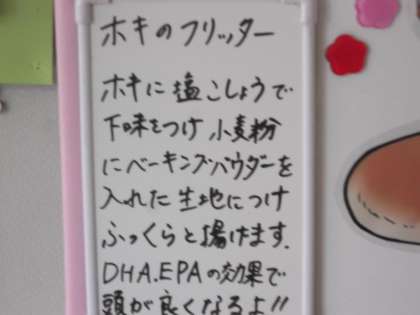 ホキのフリッター
ホキに塩こしょうで
下味をつけ小麦粉
にベーキングパウダーを
入れた生地につけ
ふっくらと揚げます.
DHA.EPAの効果で
頭が良くなるよ!!